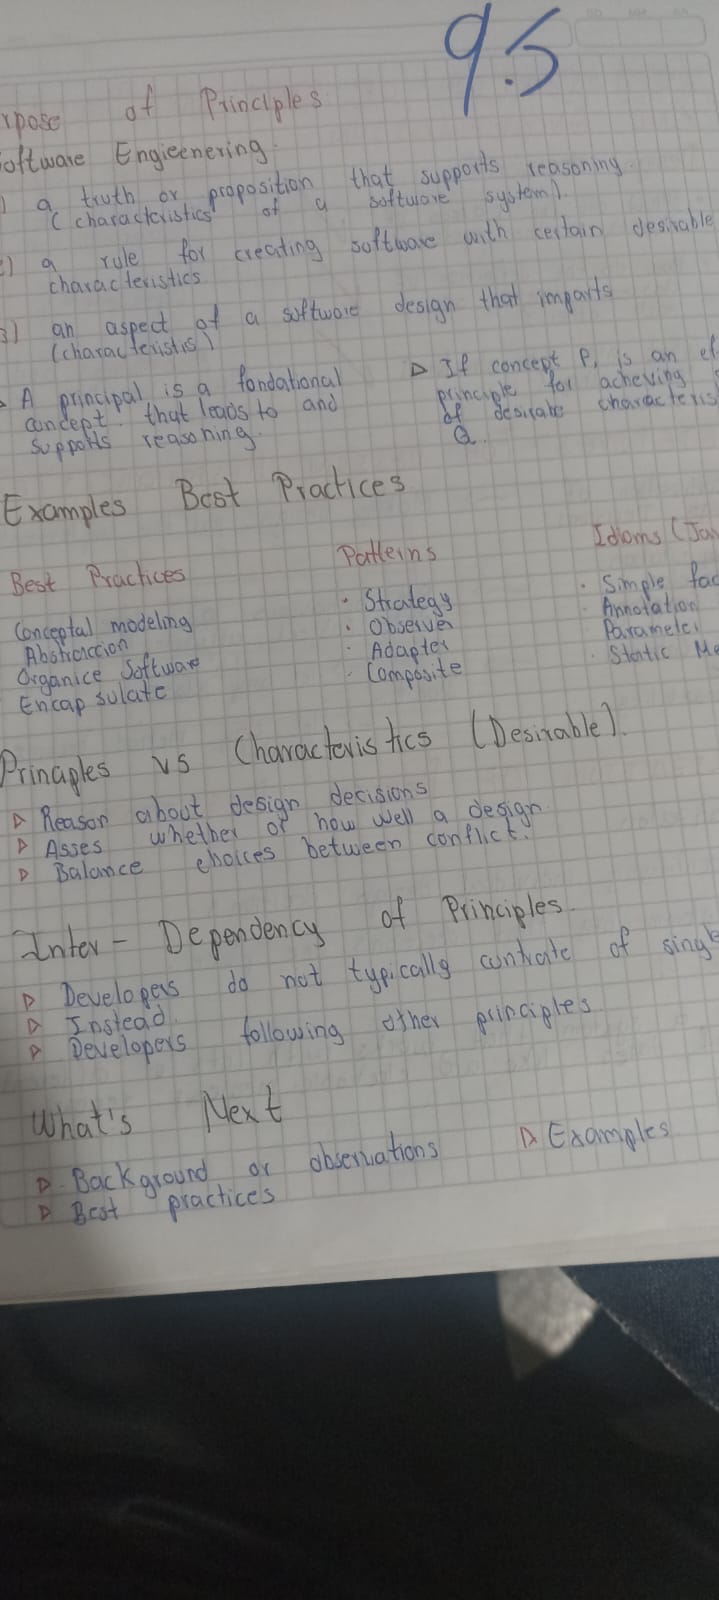 9.5
rpose of Principles
oftware Engieenering.
) a truth or proposition that supports reasoning.
( characteristics of a software system).
) a rule for creating software with certain desirable
characteristics
3) an aspect of a software design that imparts
(characteristis)
A principal is a fondational
concept. that leads to and
supports reasoning.
▷ If concept P, is an ef
principle for acheving
of desirabe characteris
Q.
Examples Best Practices
Best Practices
Conceptal modeling
Abstraccion
Organice Software
Encapsulate
Patterns
· Strategy
· Observer
· Adapter
· Composite
Idioms (Jav
· Simple fac
· Annotation
Parameter
· Static Me
Principles vs Characteristics (Desirable).
▷ Reason about design decisions
▷ Asses whether or how well a design
▷ Balance choices between conflict.
Inter - Dependency of Principles.
▷ Developers do not typically of single
▷ Instead.
▷ Developers following other principles
What's Next
▷ Background or observations
▷ Best practices
▷ Examples